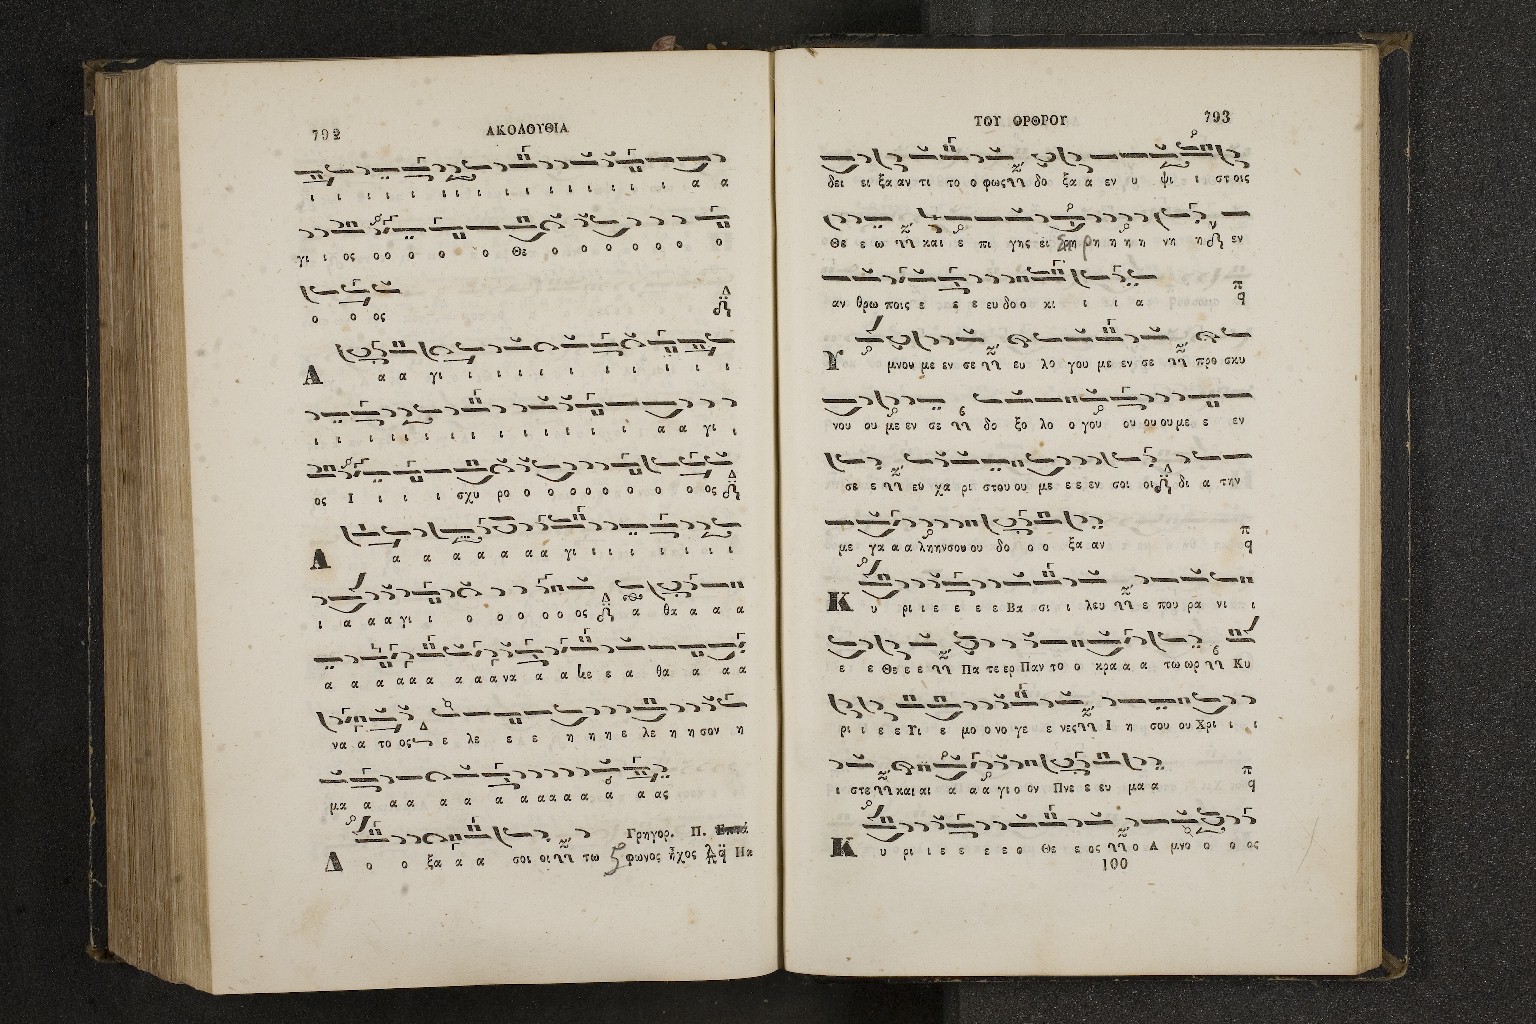 792
ΑΚΟΛΟΥΘΙΑ
ι ι ι ι ι ι ι ι ι ι ι ι ι ι ι ι α α
γι ι ος ο ο ο ο ο Θε ο ο ο ο ο ο ο
ο ο ος
Α α α γι ι ι ι ι ι ι ι ι ι ι ι
ι ι ι ι ι ι ι ι ι ι ι ι ι ι α α γι ι
ος Ι ι ι ι σχυ ρο ο ο ο ο ο ο ο ο ος
Α α α α α α α α γι ι ι ι ι ι ι ι
ι α α α γι ι ο ο ο ο ο ος α θα α α α
α α α α α α α α α να α α κε ε α θα α α α
να α το ος ε λε ε ε η η η ε λε η η σον η
μα α α α α α α α α α α α α ας
Γρηγορ. Π. Επτά
Δ ο ο ξα α α σοι οι τω φωνος ἦχος Πα
ΤΟΥ ΟΡΘΡΟΥ
793
δει ει ξα αν τι το ο φως δο ξα α εν υ ψι ι στοις
Θε ε ω και ε πι γης ει ρη η η η νη η εν
αν θρω ποις ε ε ε ευ δο ο κι ι ι α
Υ μνου με εν σε ευ λο γου με εν σε προ σκυ
νου ου με εν σε δο ξο λο ο γου ου ου ου με ε εν
σε ε ευ χα ρι στου ου με ε ε εν σοι οι δι α την
με γα α α λη ην σου ου δο ο ο ξα αν
Κ υ ρι ι ε ε ε ε Βα σι ι λευ ε που ρα νι ι
ε ε Θε ε ε Πα τε ερ Παν το ο κρα α α τω ωρ Κυ
ρι ι ε ε Υι ε μο ο νο γε ε νες Ι η σου ου Χρι ι ι
ι στε και αι α α α γι ο ον Πνε ε ευ μα α
Κ υ ρι ι ε ε ε ε ο Θε ε ος ο Α μνο ο ο ος
100